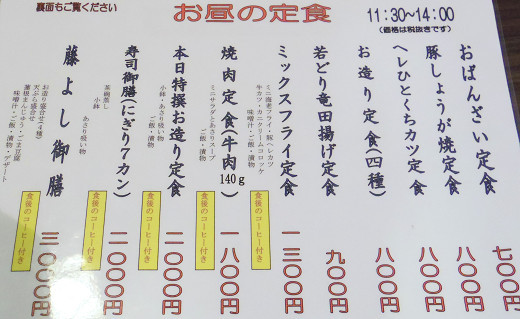 裏面もご覧ください
お昼の定食
11:30~14:00
(価格は税抜きです)
おばんざい定食
七〇〇円
豚しょうが焼定食
八〇〇円
ヘレひとくちカツ定食
八〇〇円
お造り定食(四種)
八〇〇円
若どり竜田揚げ定食
九〇〇円
ミックスフライ定食
ミニ海老フライ・豚ヘレカツ
牛カツ・カニクリームコロッケ
味噌汁・ご飯・漬物
食後のコーヒー付き
一三〇〇円
焼肉定食(牛肉140g)
ミニサラダとあさりスープ
ご飯・漬物
食後のコーヒー付き
一八〇〇円
本日特撰お造り定食
小鉢・あさり吸い物
ご飯・漬物
食後のコーヒー付き
二〇〇〇円
寿司御膳(にぎり7カン)
茶碗蒸し
小鉢・あさり吸い物
食後のコーヒー付き
二〇〇〇円
藤よし御膳
お造り盛合せ(4種)
天ぷら盛合せ
蓮根まんじゅう・ごま豆腐
味噌汁・ご飯・漬物・デザート
食後のコーヒー付き
三〇〇〇円